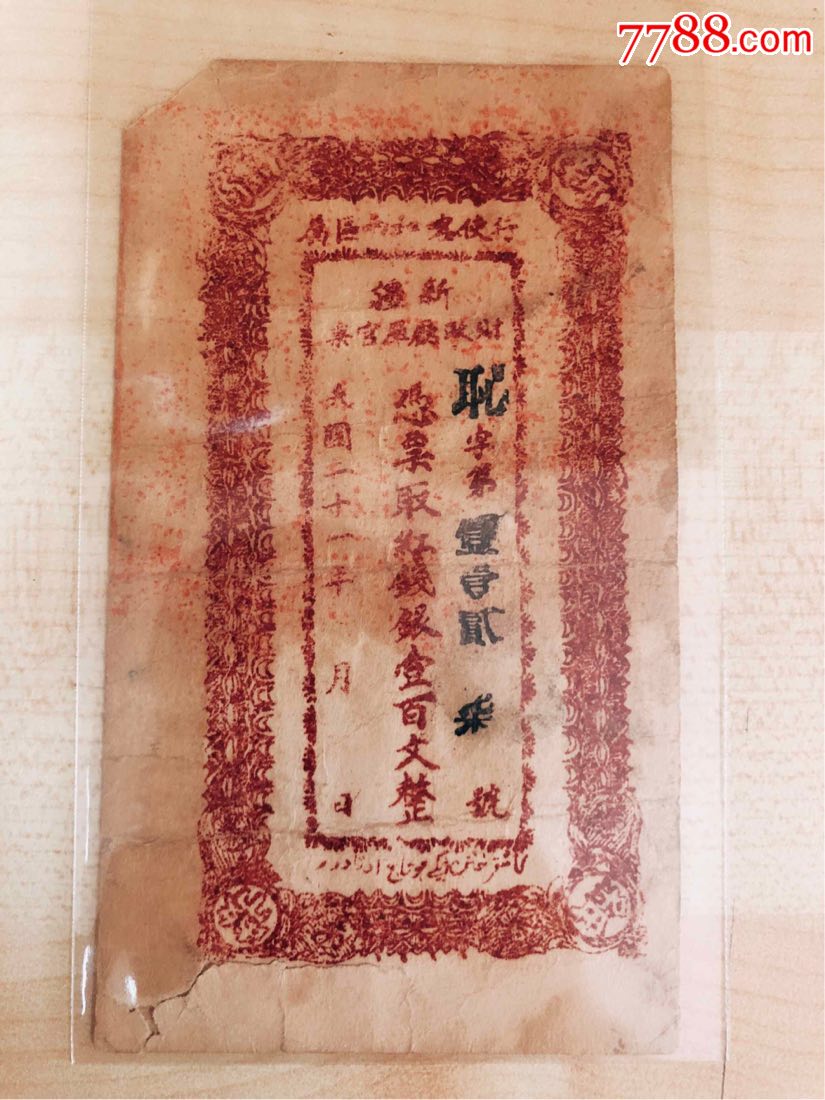 7788.com
行使喀和兩區屬
新疆
財政廳庫官票
恥字第壹百貳柒號
憑票取紅錢銀壹百文整
民國二十一年 月 日